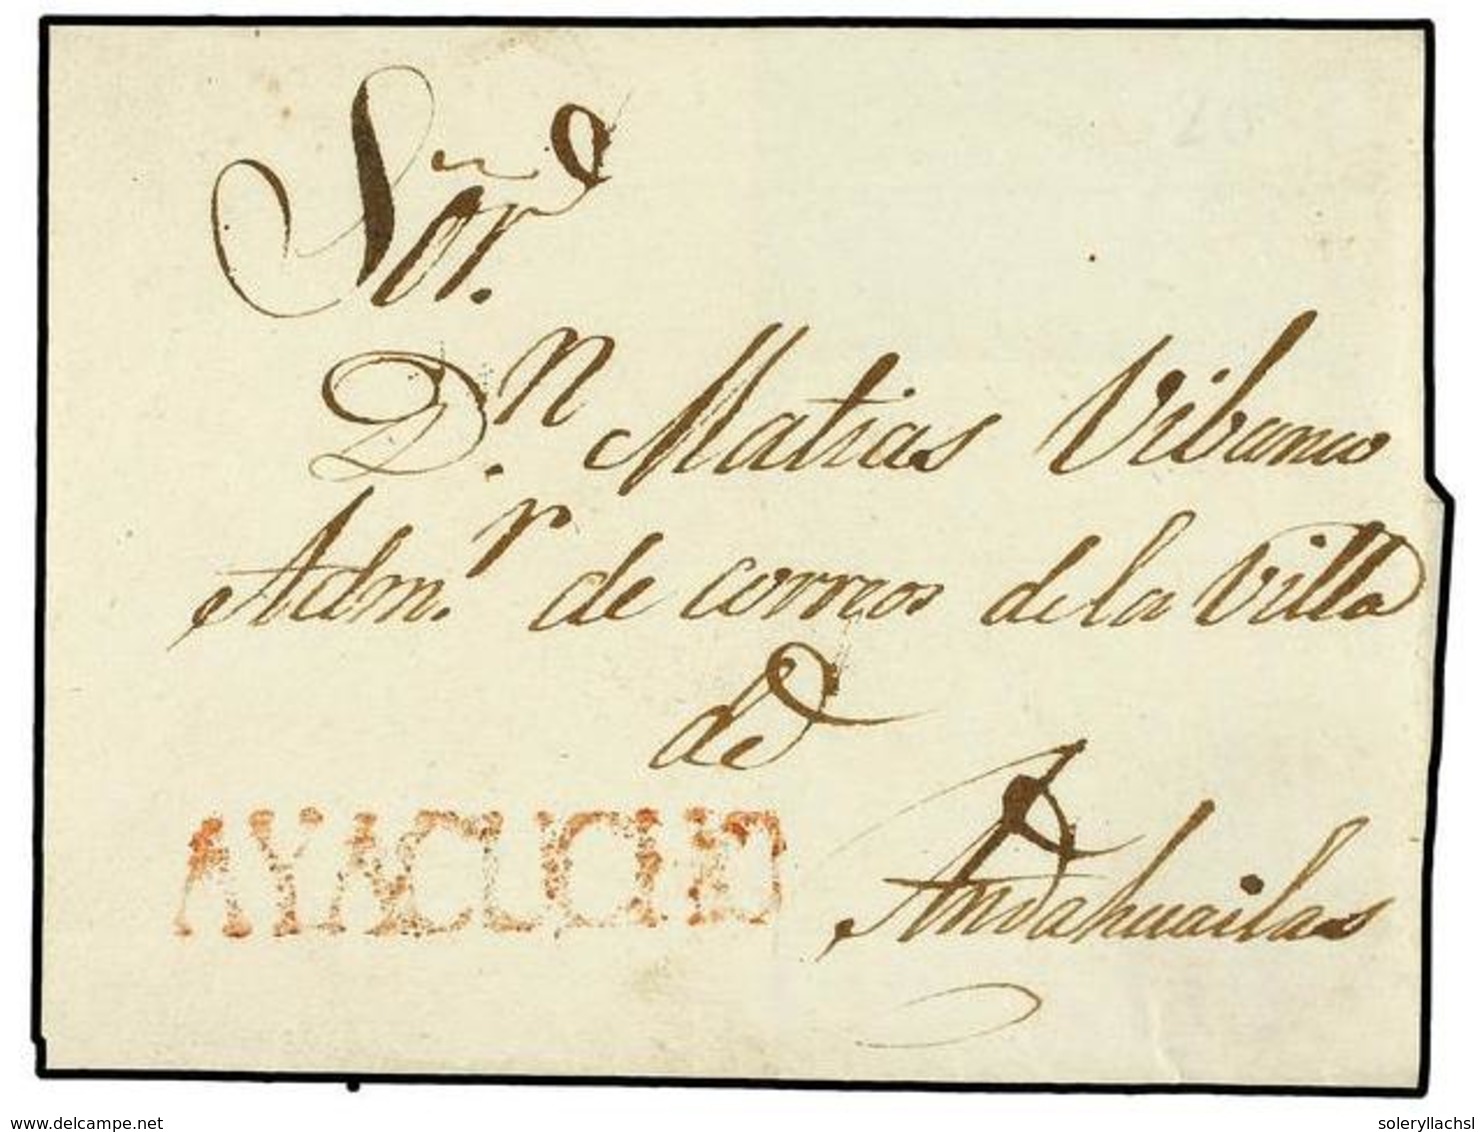 Sor.
D.n Matias Vibanco
Adm.r de correos de la Villa
de
Andahuailas
AYACUCHO
delcampe.net
soleryllachsl